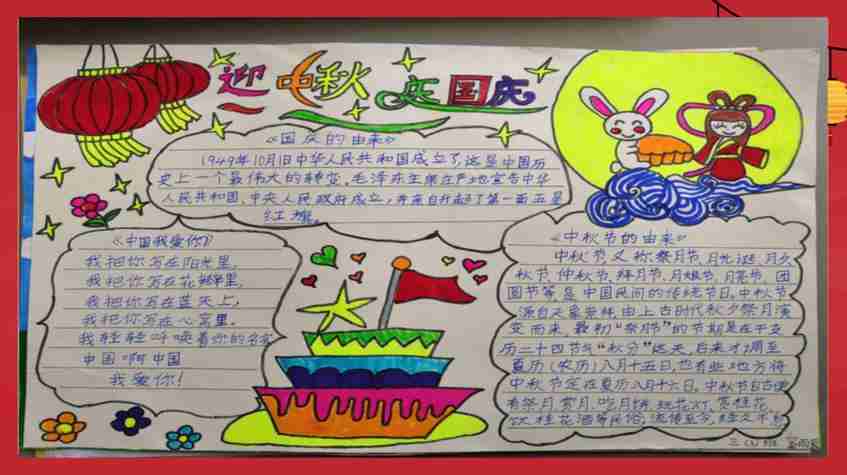 迎中秋 庆国庆
《国庆的由来》
1949年10月1日中华人民共和国成立了,这是中国历
史上一个最伟大的转变。毛泽东主席在产地宣告中华
人民共和国、中央人民政府成立,并亲自升起了第一面五星
红旗。
《中国我爱你》
我把你写在阳光里,
我把你写在花瓣里,
我把你写在蓝天上,
我把你写在心窝里。
我轻轻呼唤着你的名字
中国啊中国
我爱你!
《中秋节的由来》
中秋节又称祭月节、月光诞、月夕、
秋节、仲秋节、拜月节、月娘节、月亮节、团
圆节等,是中国民间的传统节日。中秋节
源自天象崇拜,由上古时代秋夕祭月演
变而来。最初“祭月节”的节期是在干支
历二十四节气“秋分”这天,后来才调至
夏历(农历)八月十五日,也有些地方将
中秋节定在夏历八月十六日。中秋节自古便
有祭月、赏月、吃月饼、玩花灯、赏桂花、
饮桂花酒等民俗,流传至今,经久不息
三(4)班